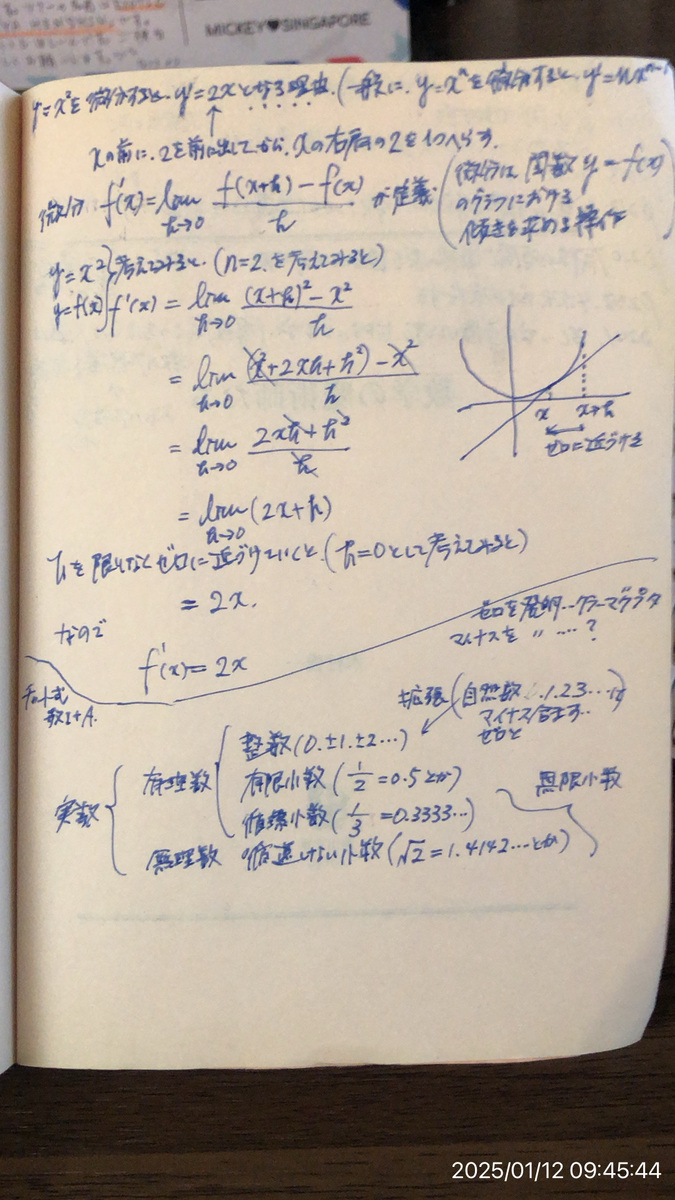 MICKEY♥SINGAPORE
y=x²を微分すると、y'=2xとなる理由、(一般に、y=xⁿを微分すると、y'=nxⁿ⁻¹
xの前に、2を前に出してから、xの右肩の2を1つへらす。
微分 f'(x)=lim h→0 f(x+h)-f(x) / h が定義
(微分は 関数 y=f(x)
のグラフにおける
傾きを求める操作)
y=x² 考えてみると、(n=2を考えてみると)
y=f(x) f'(x) = lim h→0 (x+h)²-x² / h
= lim h→0 (x²+2xh+h²)-x² / h
= lim h→0 2xh+h² / h
x x+h
ゼロに近づける
= lim h→0 (2x+h)
hを限りなくゼロに近づけていくと、(h=0として考えてみると)
= 2x.
なので
f'(x)=2x
ゼロを発明…ブラーマグプタ
マイナスを 〃 ‥‥?
チャート式
数I+A.
拡張 (自然数 1.2.3…に
マイナス含ます…
ゼロと
実数 { 有理数 { 整数(0.±1.±2…)
有限小数(1/2=0.5とか)
循環小数(1/3=0.3333…)
無限小数
無理数 循還しない小数(√2=1.4142…とか)
2025/01/12 09:45:44